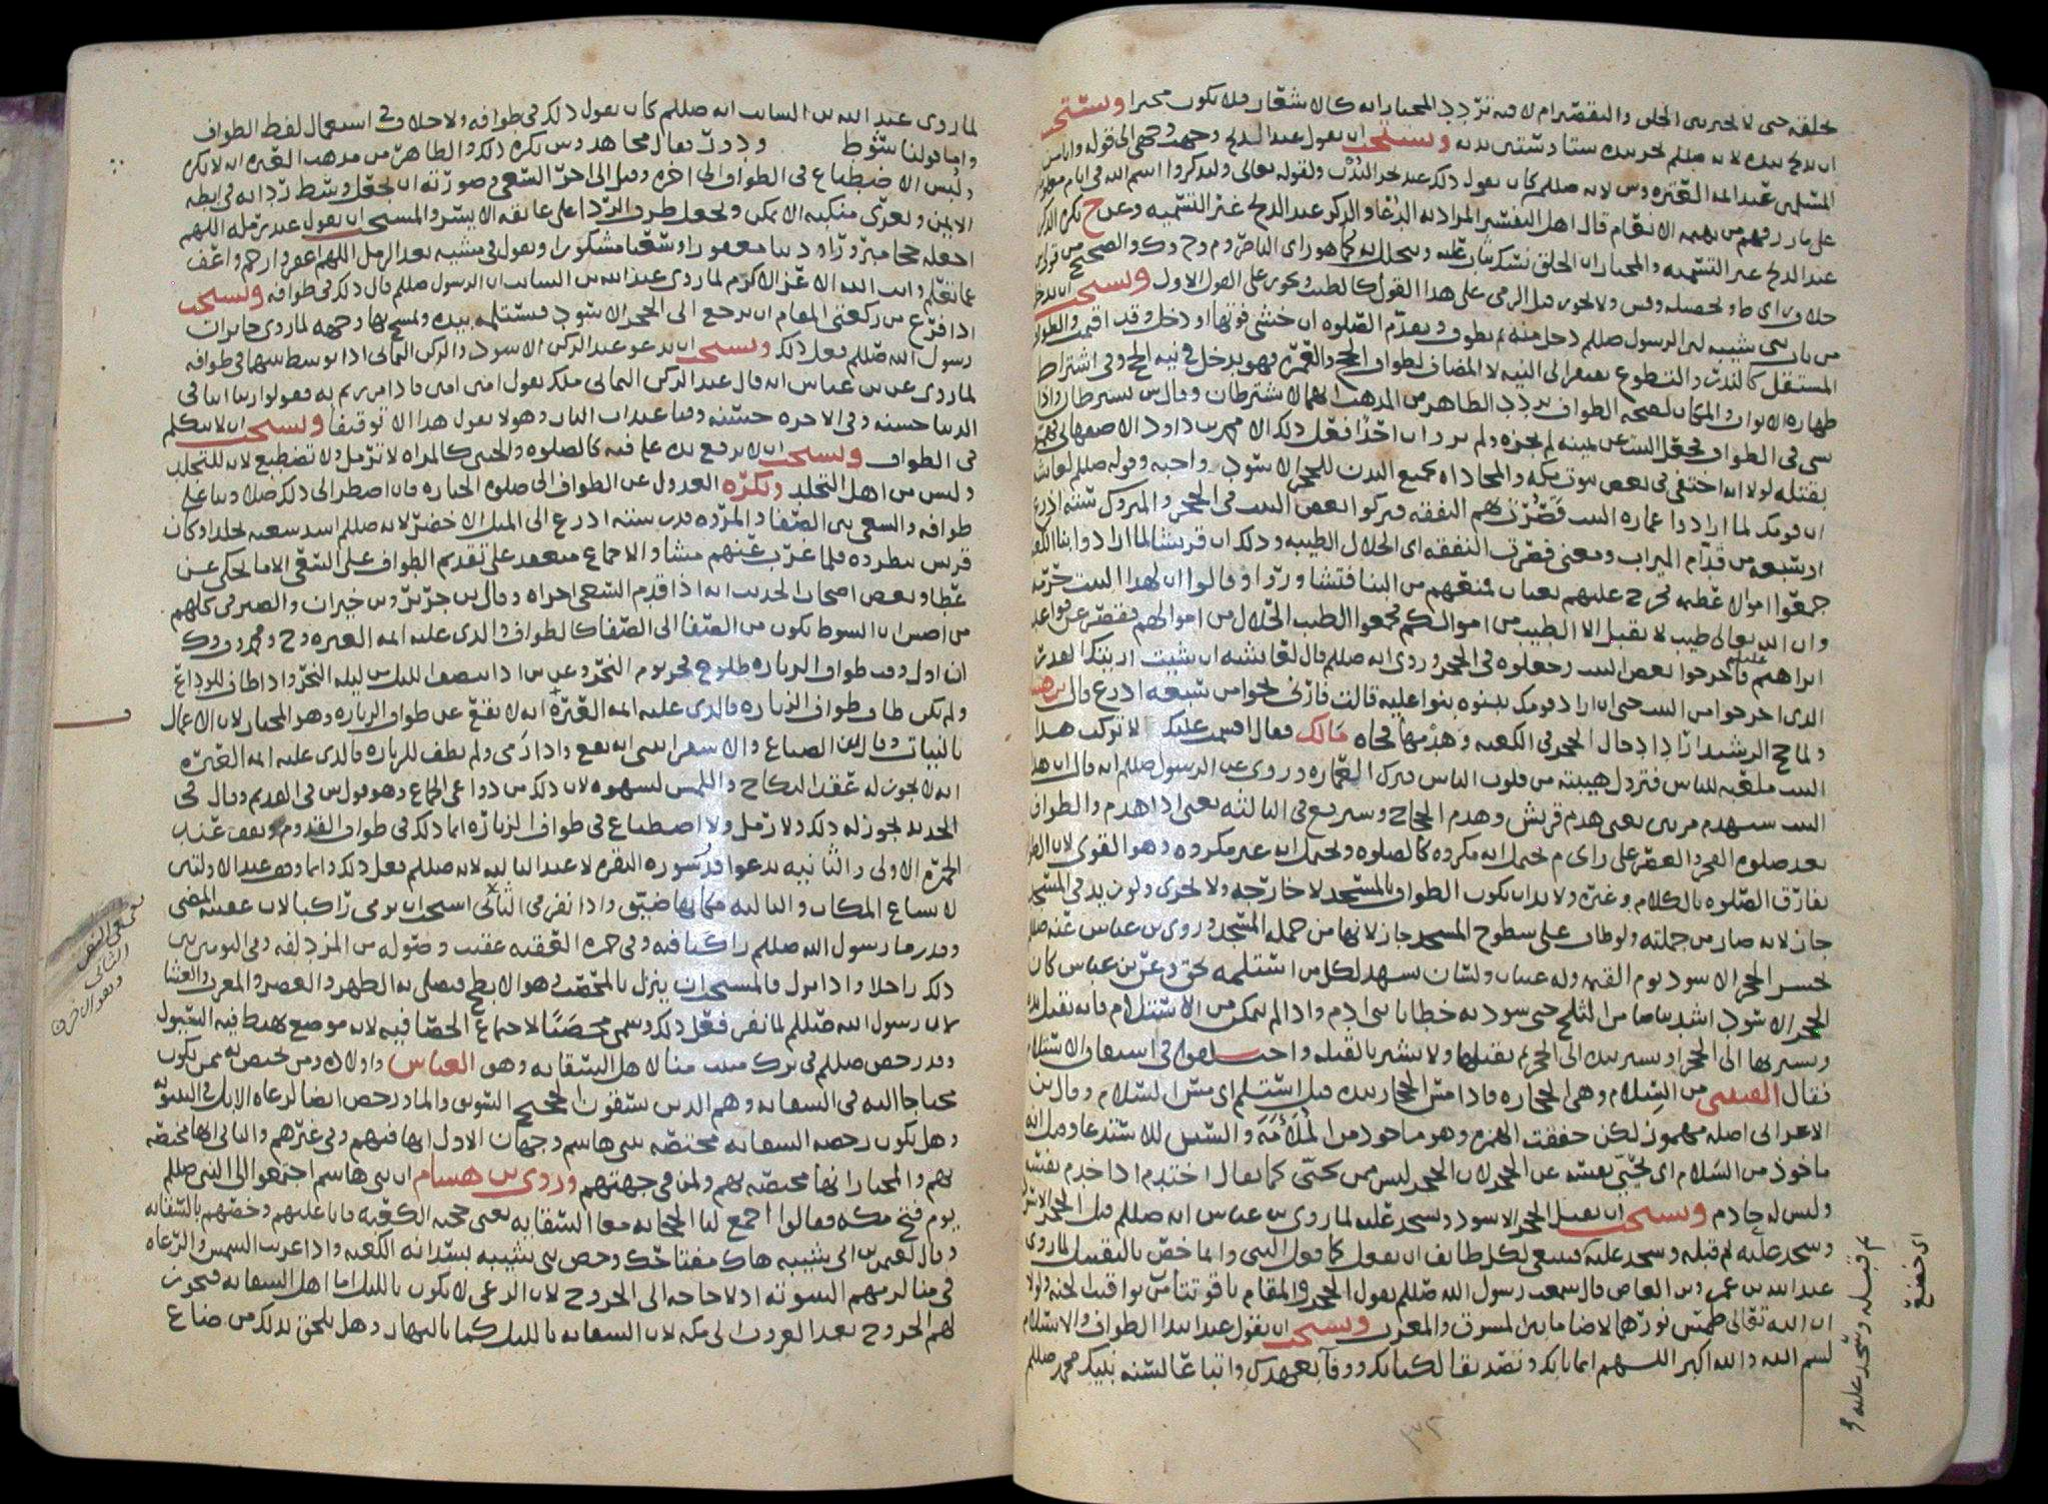 بحلقه حتى لا يخير بين الحلق والتقصير ام لا فيه تردد المختار انه كالاشعار فلا يكون مخيرا ويستحب
ان يذبح بيده لانه صللم نحر بيده ستا وستين بدنه ويستحب ان يقول عند الذبح وجهت وجهي الى قوله وانا من
المسلمين عند ائمة العتره وس لانه صللم كان يقول ذلك عند نحر البدن ولقوله تعالى وليذكروا اسم الله في ايام معلومات
على ما رزقهم من بهيمه الانعام قال اهل التفسير المراد به الدعاء والذكر عند الذبح غير التسميه وعن ح يكره الذكر
عند الذبح غير التسميه والمختار ان الحلق نسك يثاب عليه ويتحلل به كما هو راي الناصر وم وح وك والصحيح من قولي
من باب بني شيبه لان الرسول صللم دخل منه ثم يطوف ويقدم الصلوه ان خشي فوتها او دخل وقد اقيمت والطواف
المستقل كالنذر والتطوع يفتقر الى النيه لا المضاف لطواف الحج والعمره فهو يدخل في نيه الحج وفي اشتراط
طهاره الاثواب والمكان لصحه الطواف تردد الظاهر من المذهب انهما لا يشترطان وقال س يشترطان واذا
ان قومك لما ارادوا عماره البيت قصرت بهم النفقه فتركوا بعض البيت في الحجر والمتروك سته اذرع
او سبعه من قدام الميزاب ومعنى قصرت النفقه اي الحلال الطيبه وذلك ان قريشا لما ارادوا بنا الكعبه
وان الله تعالى طيب لا يقبل الا الطيب من اموالكم فجمعوا الطيب الحلال من اموالهم فقصر عن قواعد
ابراهيم عليلم فاخرجوا بعض البيت وجعلوه في الحجر وروي انه صللم قال لعائشه ان شيت اريتك القدر
الذي اخرجوا من البيت حتى ان اراد قومك يبنوه بنوا عليه قالت فاراني نحوا من سبعه اذرع قال بن هشام
ولما حج الرشيد اراد ادخال الحجر في الكعبه وهدمها فجاه مالك فقال اقسمت عليك لا تركت هذا
البيت ملعبه للناس فتزول هيبته من قلوب الناس فترك العماره وروي عن الرسول صللم انه قال ان هذا
البيت سيهدم مرتين يعني هدم قريش وهدم الحجاج وسيرفع في الثالثه يعني اذا هدم والطواف
بعد صلوه الفجر والعصر على راي م يحتمل انه مكروه كالصلوه ويحتمل انه غير مكروه وهو القوي لان الطواف
يفارق الصلوه بالكلام وغيره ولا بد ان يكون الطواف بالمسجد لا خارجه ولا يجزي ولو زيد في المسجد
جاز لانه صار من جملته ولو طاف على سطوح المسجد جاز لانها من جمله المسجد وروى بن عباس عنه صللم
يحشر الحجر الاسود يوم القيمه وله عينان ولسان يشهد لكل من استلمه بحق وعن بن عباس كان
الحجر الاسود اشد بياضا من الثلج حتى سود به خطايا بني ادم واذا لم يتمكن من الاستلام فانه يقبل يده
ويشير بها الى الحجر او يشير بيده الى الحجر ثم يقبلها ولا يشير بالقبله واختلفوا في اشتقاق الاستلام
فقال القتيبي من السلام وهي الحجاره فاذا مس الحجار بيده قيل استلم اي مس السلام وقال بن
الاعرابي اصله مهموز لكن خففت الهمزه وهو ماخوذ من الملأمه والسين للاستدعاء وقيل انه
ماخوذ من السلام اي يحيي نفسه عن الحجر لان الحجر ليس ممن يحيى كما يقال اختدم اذا خدم نفسه
وليس له خادم ويستحب ان يقبل الحجر الاسود ويسجد عليه لما روى بن عباس انه صللم قبل الحجر الاسود
وسجد عليه ثم قبله وسجد عليه فينبغي لكل طائف ان يفعل كما فعل النبي وانما خص بالتقبيل لما روى
عبد الله بن عمرو بن العاص قال سمعت رسول الله صللم يقول الحجر والمقام ياقوتتان من يواقيت الجنه ولولا
ان الله تعالى طمس نورهما لاضا ما بين المشرق والمغرب ويستحب ان يقول عند ابتدا الطواف والاستلام
بسم الله والله اكبر اللهم ايمانا بك وتصديقا لكتابك ووفآ بعهدك واتباعا لسنه نبيك محمد صللم
ثم قبله وسجد عليه
اي خضع
لما روى عبد الله بن السائب انه صللم كان يقول ذلك في طوافه ولا خلاف في استعمال لفظ الطواف
واما قولنا شوط ودور فقال مجاهد وس يكره ذلك والظاهر من مذهب العتره انه لا يكره
ولبس الاضطباع في الطواف الى اخره وقيل الى اخر السعي وصورته ان يجعل وسط ردائه في ابطه
الايمن ويعري منكبه الايمن ويجعل طرف الردا على عاتقه الايسر والمستحب ان يقول عند رمله اللهم
اجعله حجا مبرورا وذنبا مغفورا وسعيا مشكورا ويقول في مشيه بعد الرمل اللهم اغفر وارحم واعف
عما تعلم وانت الله الاعز الاكرم لما روى عبد الله بن السائب ان الرسول صللم قال ذلك في طوافه ويستحب
اذا فرغ من ركعتي المقام ان يرجع الى الحجر الاسود فيستلمه بيده ويمسح بها وجهه لما روى جابر ان
رسول الله صللم فعل ذلك ويستحب ان يدعو عند الركن الاسود والركن اليماني اذا توسط بينهما في طوافه
لما روي عن بن عباس انه قال عند الركن اليماني ملك يقول امين امين فاذا مررتم به فقولوا ربنا اتنا في
الدنيا حسنه وفي الاخره حسنه وقنا عذاب النار وهو لا يقول هذا الا توقيفا ويستحب ان لا يتكلم
في الطواف ويستحب ان لا يرفع يديه فيه كالصلوه والخنثى كالمراه لا ترمل ولا تضطبع لانه للتجلد
وليس من اهل التجلد ويكره العدول عن الطواف الى صلوه الجنازه فان اضطر الى ذلك صلا وبنا على
طوافه والسعي بين الصفا والمروه قدر سته اذرع الى الميل الاخضر لانه صللم اشتد سعيه لخلد او كان
قريش تطرده فلما غرب عنهم مشا والاجماع منعقد على تقديم الطواف على السعي الا ما يحكى عن
عطا وبعض اصحاب الحديث انه اذا قدم السعي اجزاه وقال بن جرير وبن خيران والصيرفي كلهم
من اصش ان الشوط يكون من الصفا الى الصفا كالطواف والذي عليه ائمه العتره وح ومحمد وك
ان اول وقت طواف الزياره طلوع فجر يوم النحر وعن س اذا انتصف الليل من ليله النحر واذا طاف للوداع
ولم يكن طاف طواف الزياره فالذي عليه ائمه العتره انه لا يقع عن طواف الزياره وهو المختار لان الاعمال
بالنيات وقال بن الصباغ والاسفرائيني انه يقع واذا رمى ولم يطف للزياره فالذي عليه ائمه العتره
انه لا يجوز له عقد النكاح واللمس لشهوه لان ذلك من دواعي الجماع وهو قول س في القديم وقال في
الجديد يجوز له ذلك ولا رمل ولا اضطباع في طواف الزياره انما ذلك في طواف القدوم ويقف عند
الجمره الاولى والثانيه يدعوا قدر سوره البقره لا عند الثالثه لانه صللم فعل ذلك وانما وقف عند الاولتين
لاتساع المكان والثالثه مكانها ضيق واذا نفر في الثاني استحب ان يرمي راكبا لان عقيبه المضي
وقد رما رسول الله صللم راكبا فيه وفي جمره العقبه عقيب وصوله من المزدلفه وفي اليومين بين
ذلك راجلا واذا نزل فالمستحب ان ينزل بالمحصب وهو الابطح فيصلي به الظهر والعصر والمغرب والعشا
لان رسول الله صللم لما نفر فعل ذلك وسمي محصبا لاجتماع الحصا فيه لانه موضع هبط فيه السيول
وقد رخص صللم في ترك مبيت منا لاهل السقايه وهو العباس واولاده ومن يختص به ممن يكون
محتاجا اليه في السقايه وهم الذين يسقون الحجيج السويق والماء ورخص ايضا لرعاه الابل في البيتوته
وهل يكون رخصه السقايه مختصه ببني هاشم وجهان الاول انها فيهم وفي غيرهم والثاني انها مختصه
بهم والمختار انها مختصه بهم ولمن في جهتهم وروى بن هشام ان بني هاشم اجتمعوا الى النبي صللم
يوم فتح مكه فقالوا اجمع لنا الحجابه مع السقايه يعني حجبه الكعبه فابا عليهم وخصهم بالسقايه
وقال لعثمن الى شيبه هاك مفتاحك وخص بني شيبه بسدانه الكعبه واذا غربت الشمس والرعاه
في منا لزمهم البيتوته اذ لا حاجه الى الخروج لان الرعي لا يكون بالليل اما اهل السقايه فيجوز
لهم الخروج بعد الغروب الى مكه لان السقايه بالليل كما بالنهار وهل يلحق بذلك من ضاع
يعني في النفر
الثاني
وهو الاخر